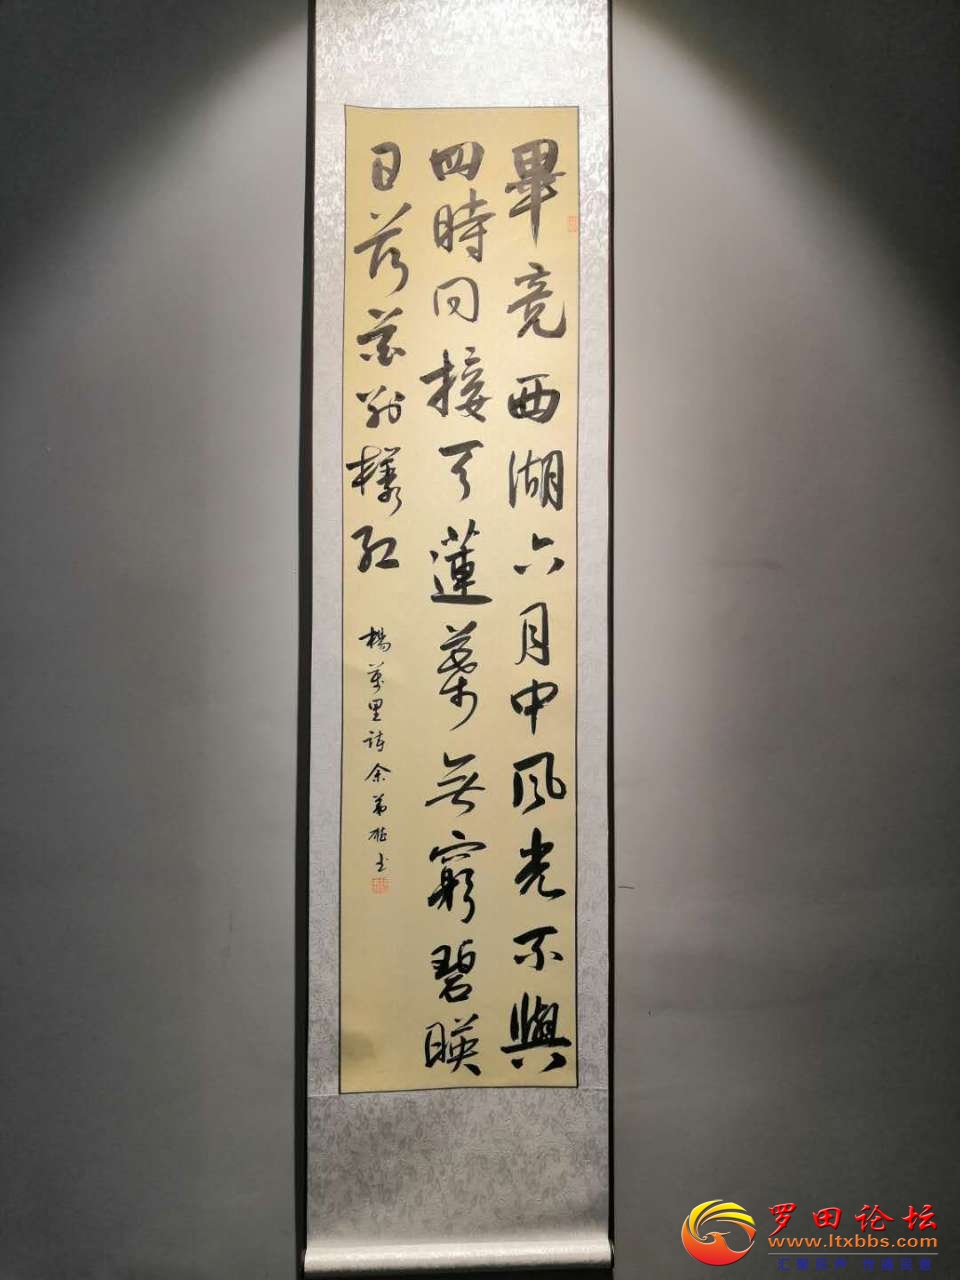 畢竟西湖六月中風光不與
四時同接天蓮葉無窮碧映
日荷花別樣紅
楊萬里詩余
書
罗田论坛
www.ltxbbs.com